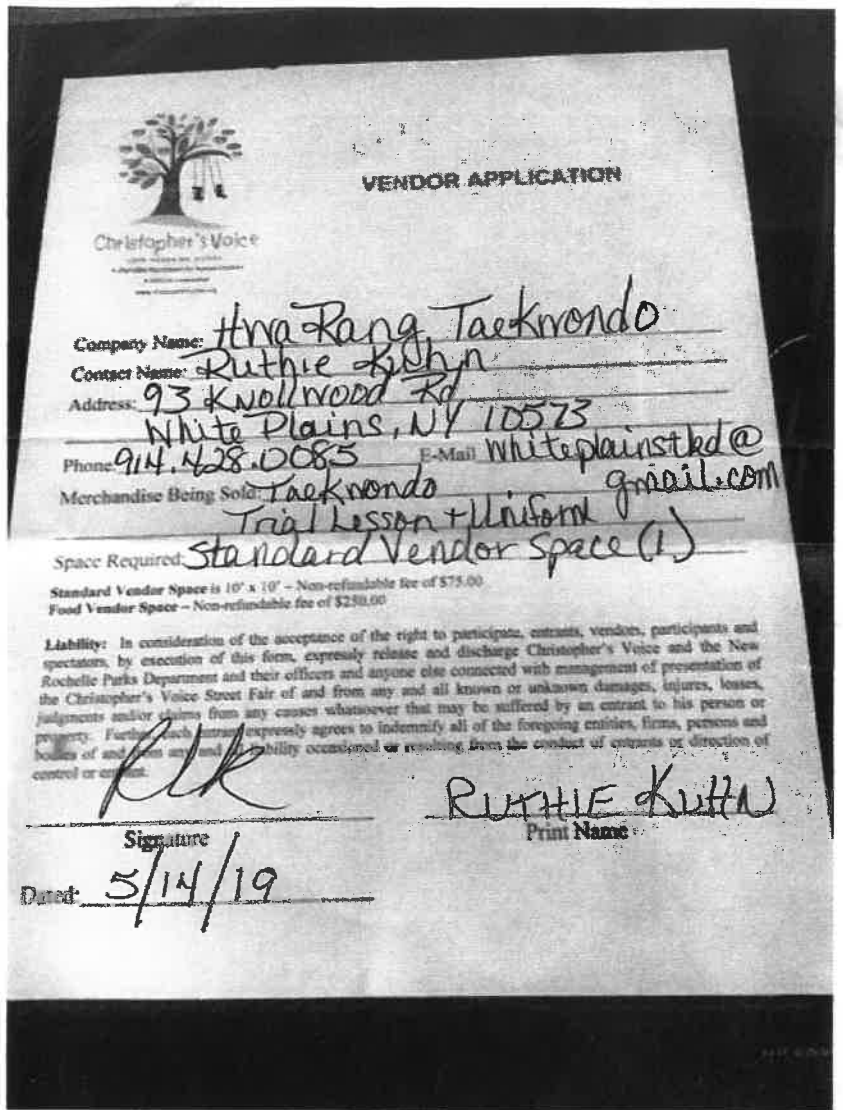 VENDOR APPLICATION
Christopher's Voice
Company Name: Hwa Rang Taekwondo
Contact Name: Ruthie Kuhn
Address: 93 Knollwood Rd
White Plains, NY 10573
Phone: 914.428.0085 E-Mail whiteplainstkd@
gmail.com
Merchandise Being Sold: Taekwondo
Trial Lesson + Uniform
Space Required: Standard Vendor Space (1)
Standard Vendor Space is 10' x 10' – Non-refundable fee of $75.00
Food Vendor Space – Non-refundable fee of $250.00
Liability: In consideration of the acceptance of the right to participate, entrants, vendors, participants and
spectators, by execution of this form, expressly release and discharge Christopher's Voice and the New
Rochelle Parks Department and their officers and anyone else connected with management of presentation of
the Christopher's Voice Street Fair of and from any and all known or unknown damages, injures, losses,
judgments and/or claims from any causes whatsoever that may be suffered by an entrant to his person or
property. Further, each entrant expressly agrees to indemnify all of the foregoing entities, firms, persons and
bodies of and from any and liability occasioned or resulting from the conduct of entrants or direction of
control or entrant.
RLK
RUTHIE KUHN
Signature Print Name
Dated: 5/14/19